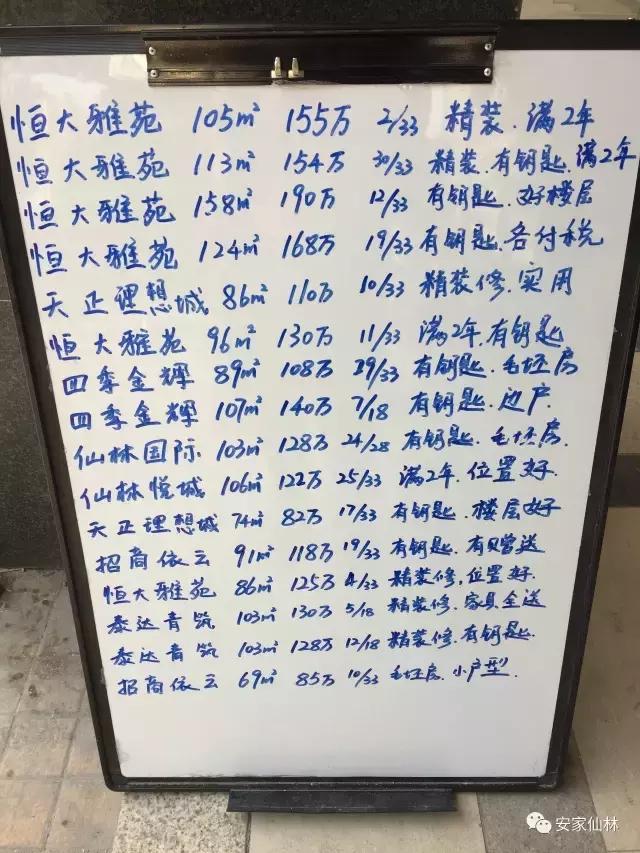 恒大雅苑 105m² 155万 2/33 精装.满2年
恒大雅苑 113m² 154万 30/33 精装.有钥匙.满2年
恒大雅苑 158m² 190万 12/33 有钥匙.好楼层
恒大雅苑 124m² 168万 19/33 有钥匙.各付税
天正理想城 86m² 110万 10/33 精装修.实用
恒大雅苑 96m² 130万 11/33 满2年.有钥匙
四季金輝 89m² 108万 29/33 有钥匙.毛坯房
四季金輝 107m² 140万 7/18 有钥匙.边户.
仙林国际 103m² 128万 24/28 有钥匙.毛坯房.
仙林悦城 106m² 122万 25/33 满2年.位置好.
天正理想城 74m² 82万 17/33 有钥匙.楼层好
招商依云 91m² 118万 19/33 有钥匙.有贝曾送
恒大雅苑 86m² 125万 4/33 精装修,位置好.
泰达青筑 103m² 130万 5/18 精装修.家具全送
泰达青筑 103m² 128万 12/18 精装修.有钥匙.
招商依云 69m² 85万 10/33 毛坯房.小户型.
安家仙林